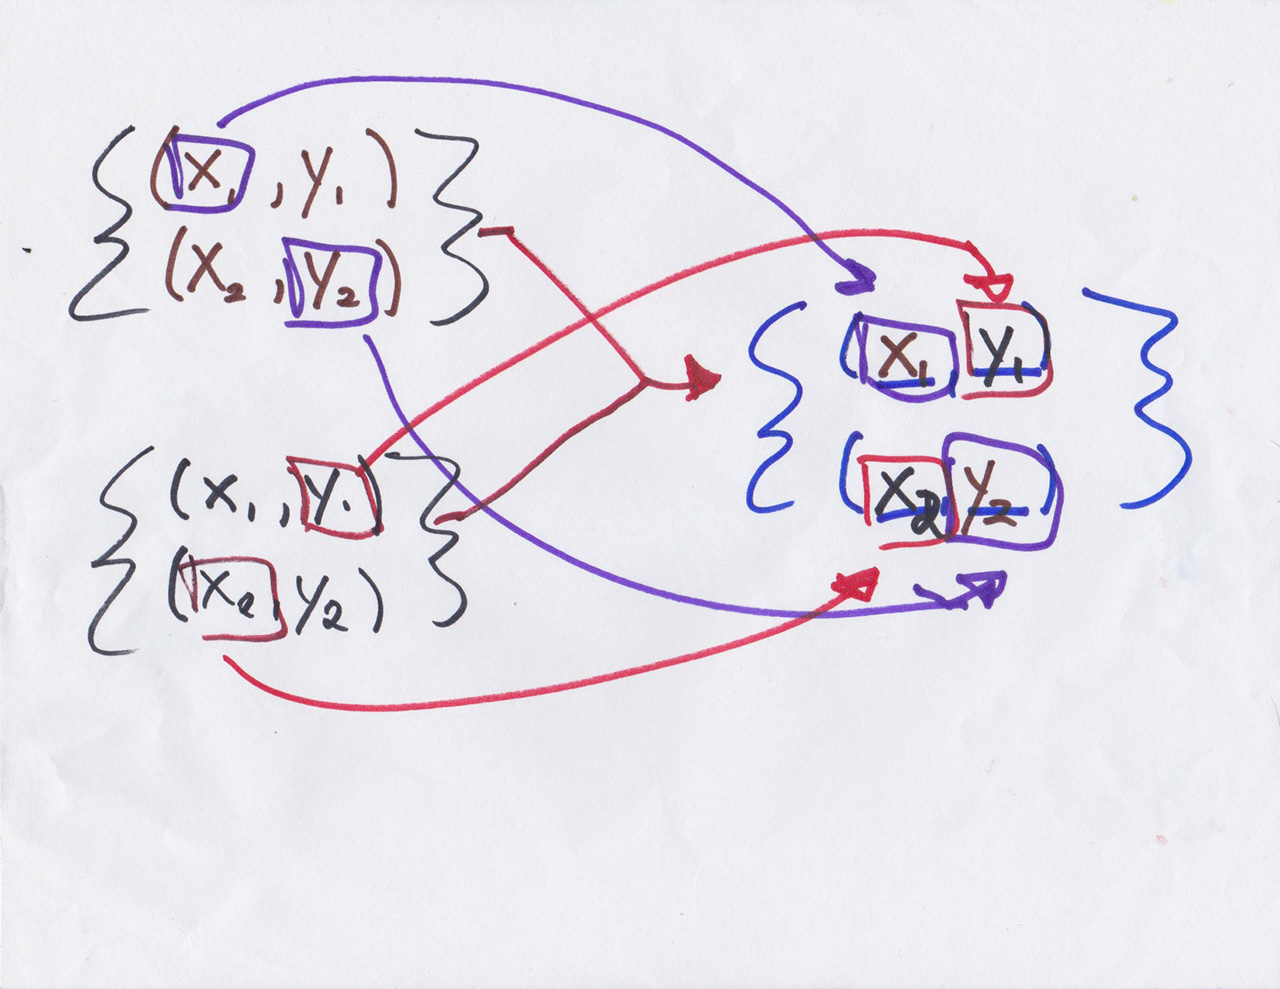 { (x₁, y₁) }
(x₂, y₂)
{ (x₁, y₁) }
(x₂, y₂)
{ (x₁ y₁) }
(x₂ y₂)